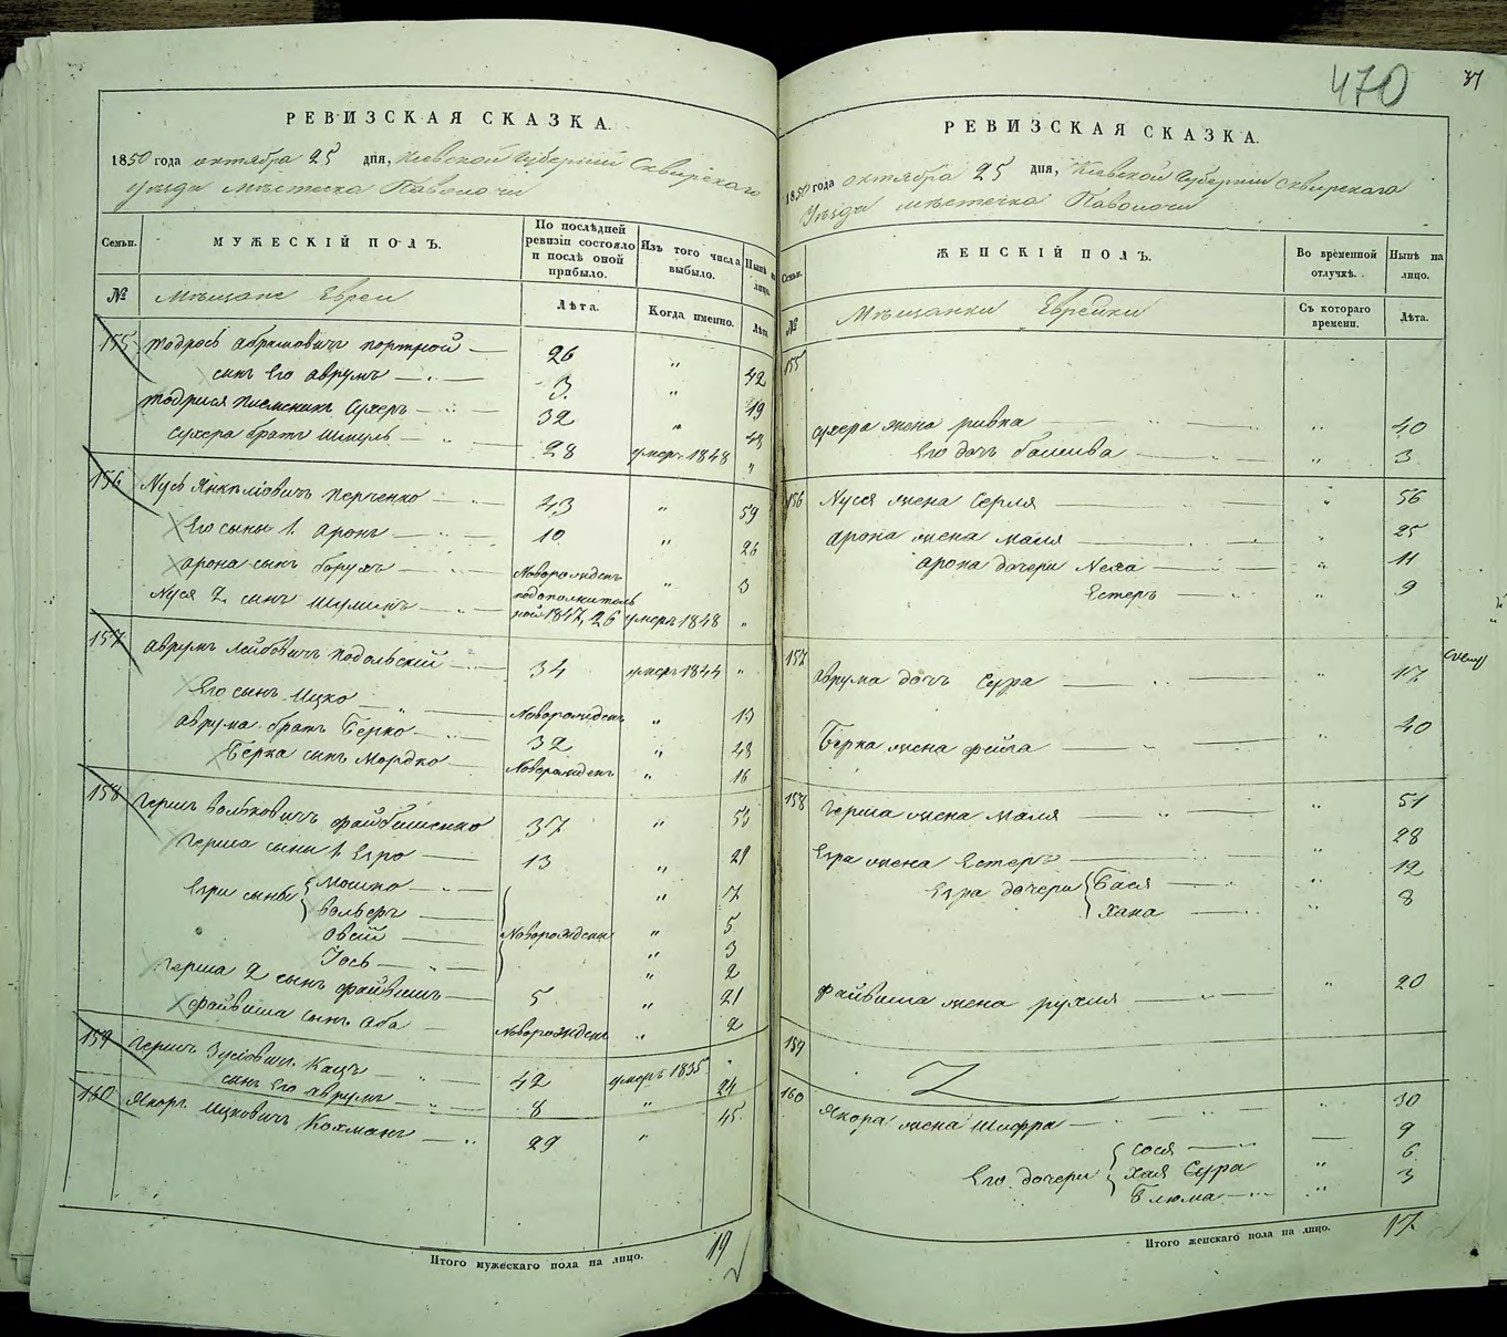 470
37
РЕВИЗСКАЯ СКАЗКА.
1850 года октября 25 дня, Кіевской Губерніи Сквирскаго
Уѣзда мѣстечка Паволочи
Семьи. МУЖЕСКІЙ ПОЛЪ. По послѣдней ревизіи состояло и послѣ оной прибыло. Изъ того числа выбыло. Нынѣ на лицо.
№ Мѣщане Евреи Лѣта. Когда именно. Лѣта
155 Тодрось Абрамовичъ Портной 26 " 42
сынъ Его Аврумъ 3. " 19
Тодрися Сухеръ 32 " 48
Сухера братъ Шмуль 28 умеръ 1848 "
156 Нусь Янкеліовичъ Перченко 43 " 59
Его сыны 1. Аронъ 10 " 26
Арона сынъ Борухъ Новорожденъ " 3
Нуся 2. сынъ 1847, 26 умеръ 1848 "
157 Аврумъ Лейбовичъ Подольскій 34 умеръ 1844 "
Его сынъ Ицко Новорожденъ " 13
Аврума братъ Берко 32 " 48
Берка сынъ Мордко Новорожденъ " 16
158 Гершъ Вольковичъ Файбишенко 37 " 53
Герша сыны 1. Егро 13 " 29
Егри сыны Мошко " 7
Вольверъ " 5
Овсій Новорожденны " 3
Іось " 2
Герша 2 сынъ Файвишъ 5 " 21
Файвиша сынъ Аба Новорожденъ " 2
159 Гершъ Зусіовичъ Кацъ 42 умеръ 1835 "
сынъ Его Аврумъ 8 " 24
160 Ицковичъ Кохманъ 29 " 45
Итого мужескаго пола на лицо. 19
РЕВИЗСКАЯ СКАЗКА.
1850 года октября 25 дня, Кіевской Губерніи Сквирскаго
Уѣзда мѣстечка Паволочи
Семьи. ЖЕНСКІЙ ПОЛЪ. Во временной отлучкѣ. Нынѣ на лицо.
№ Мѣщанки Еврейки Съ котораго времени. Лѣта.
155
Сухера жена Ривка " 40
Его дочь Башива " 3
156 Нуся жена Серля " 56
Арона жена Маля " 25
Арона дочери Неха " 11
Естеръ " 9
157 Аврума дочь Сура " 17
Берка жена Фейга " 40
158 Герша жена Маля " 51
Егра жена Естеръ " 28
Егра дочери Бася " 12
Хана " 8
Файвиша жена Рухля " 20
159
160 Якора жена Шифра " 30
Его дочери Сося 9
Хая Сура " 6
Блюма " 3
Итого женскаго пола на лицо. 17